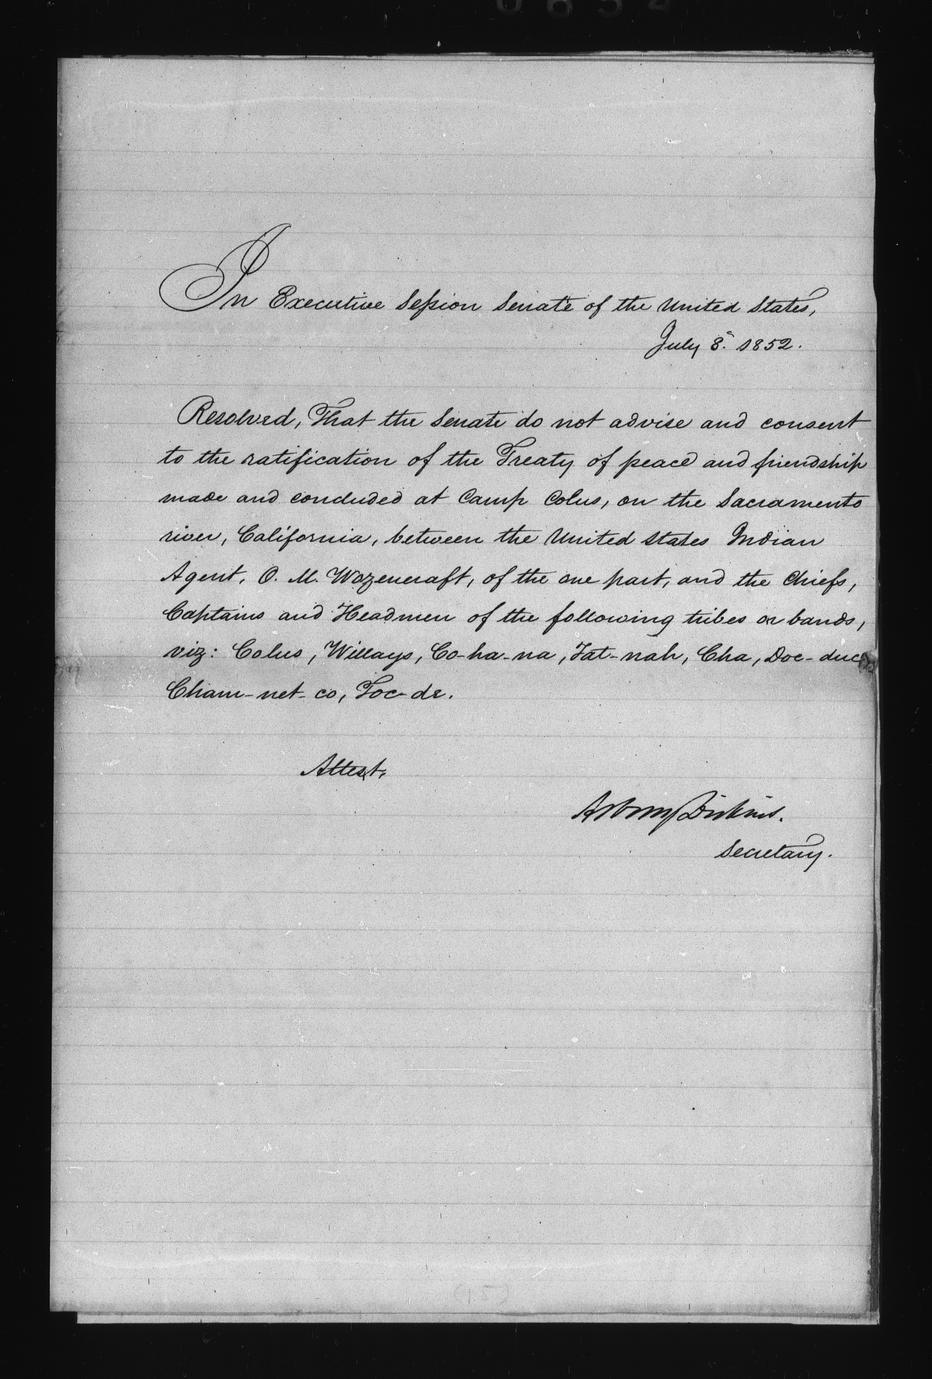 In Executive Session Senate of the United States,
July 8. 1852.
Resolved, That the Senate do not advise and consent
to the ratification of the Treaty of peace and friendship
made and concluded at Camp Colus, on the Sacramento
river, California, between the United States Indian
Agent, O. M. Wozencraft, of the one part, and the Chiefs,
Captains and Headmen of the following tribes or bands,
viz: Colus, Willays, Co-ha-na, Tat-nah, Cha, Doc-duc,
Cham-net-co, Toc-de.
Attest,
Asbury Dickins.
Secretary.
(15)